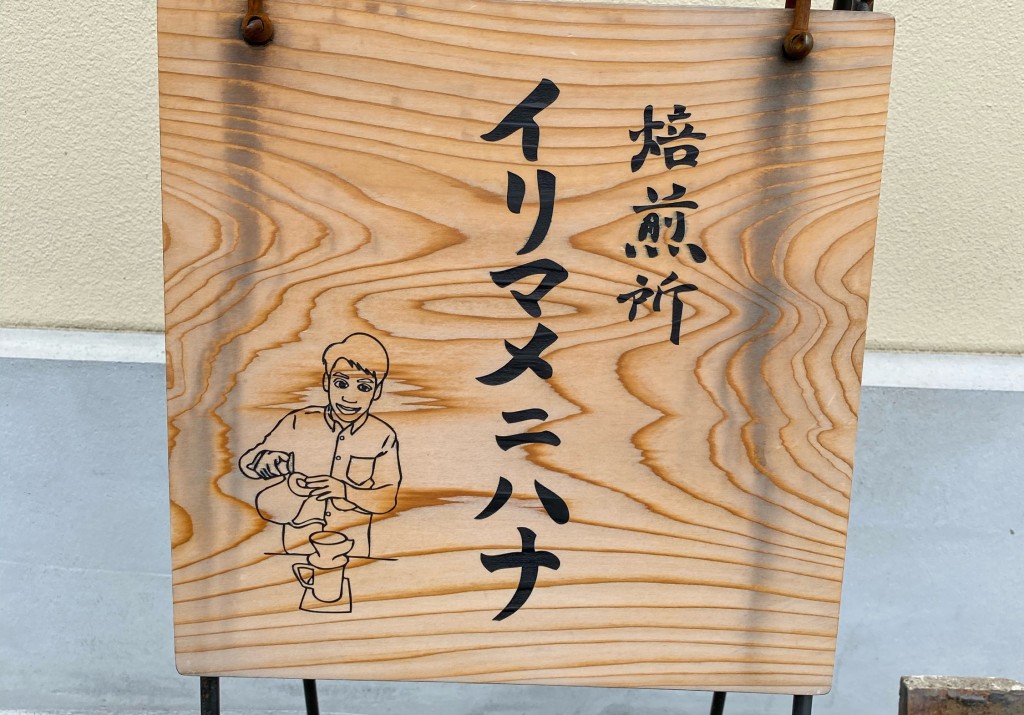 焙煎所
イリマメニハナ